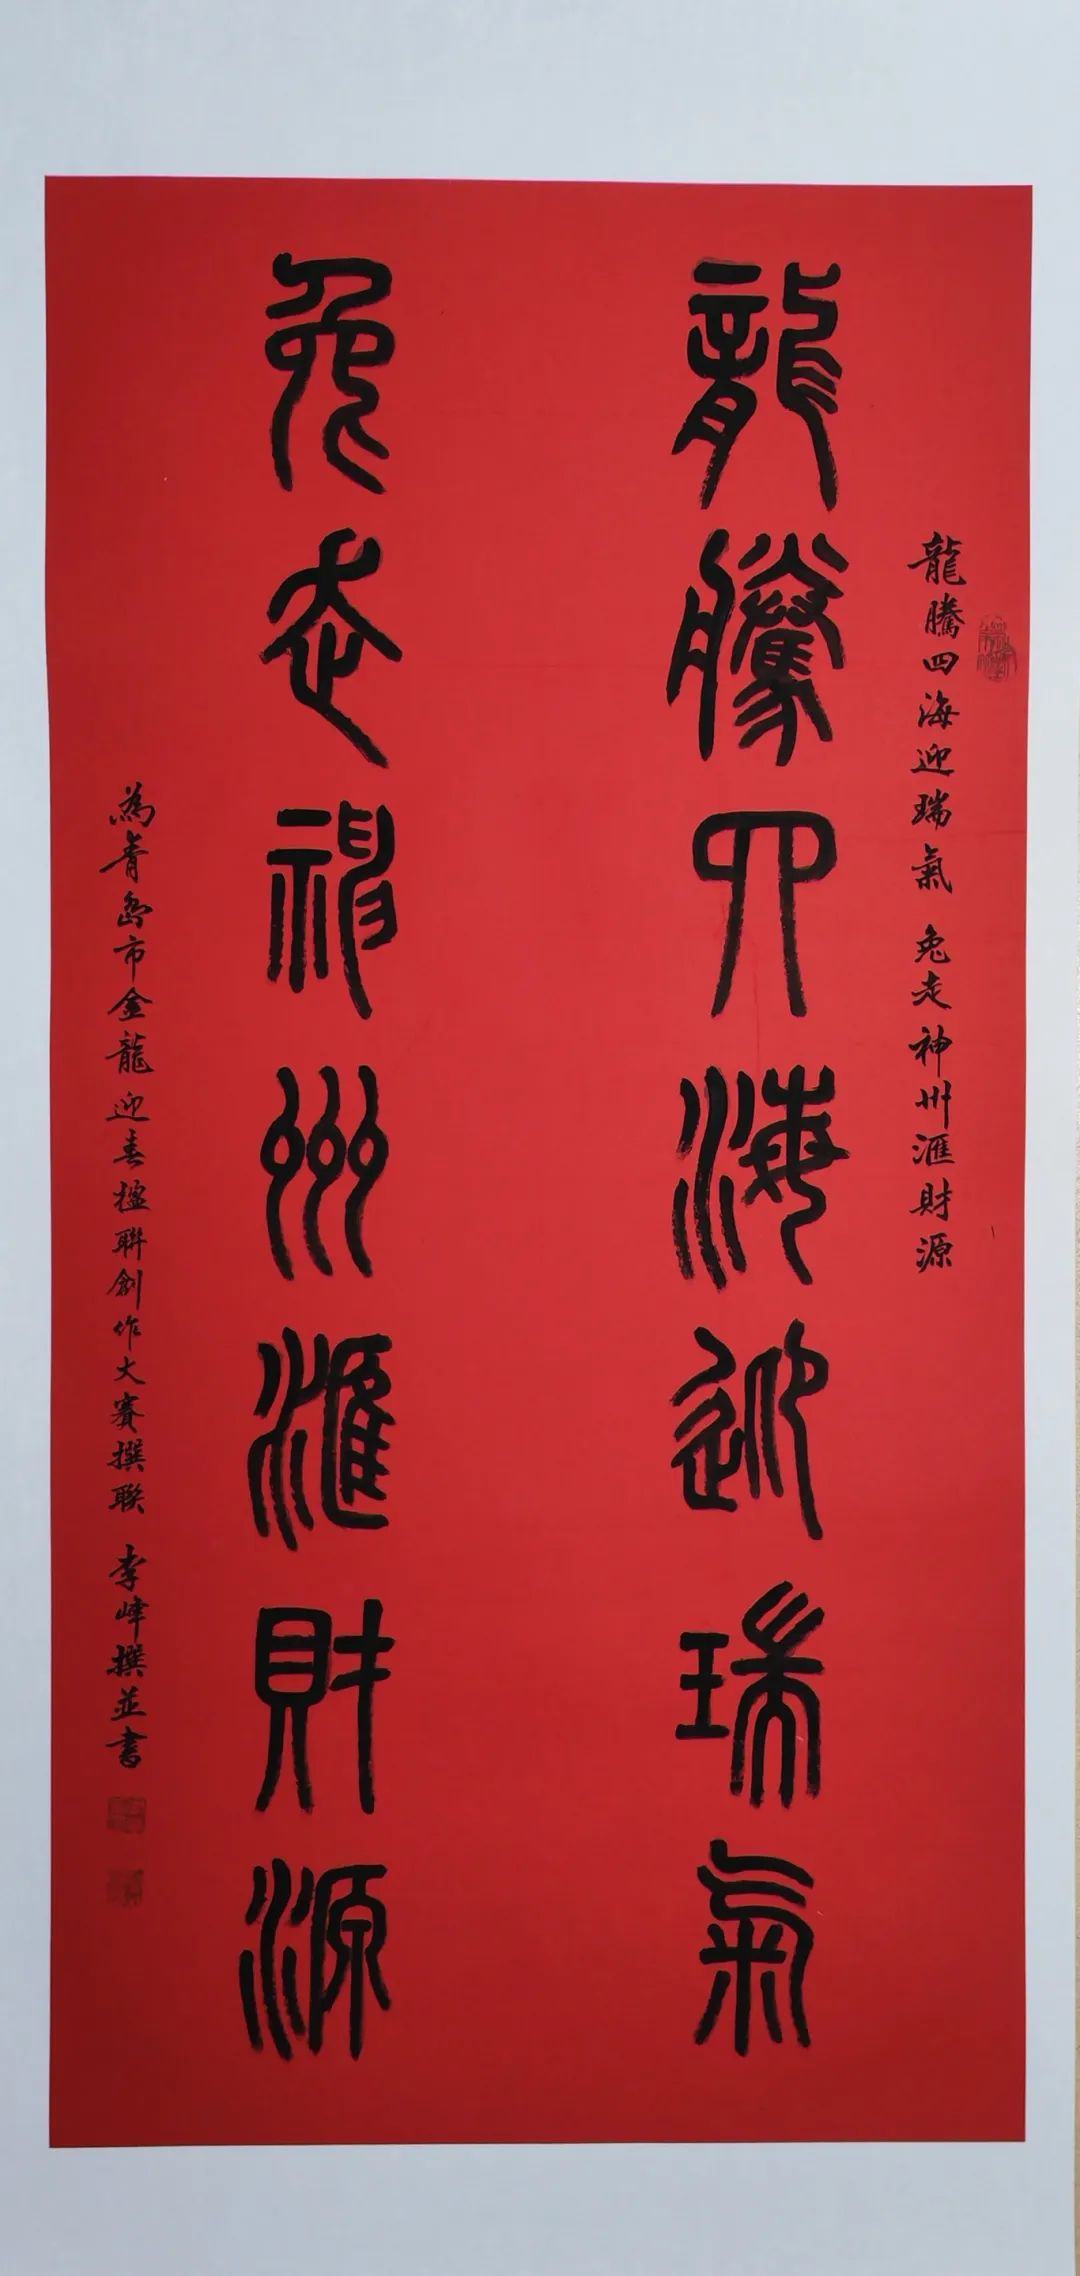 龍騰四海迎瑞氣 兔走神州滙財源
龍騰四海迎瑞氣
兔走神州滙財源
為青島市金龍迎春楹聯創作大賽撰聯 李峰撰並書